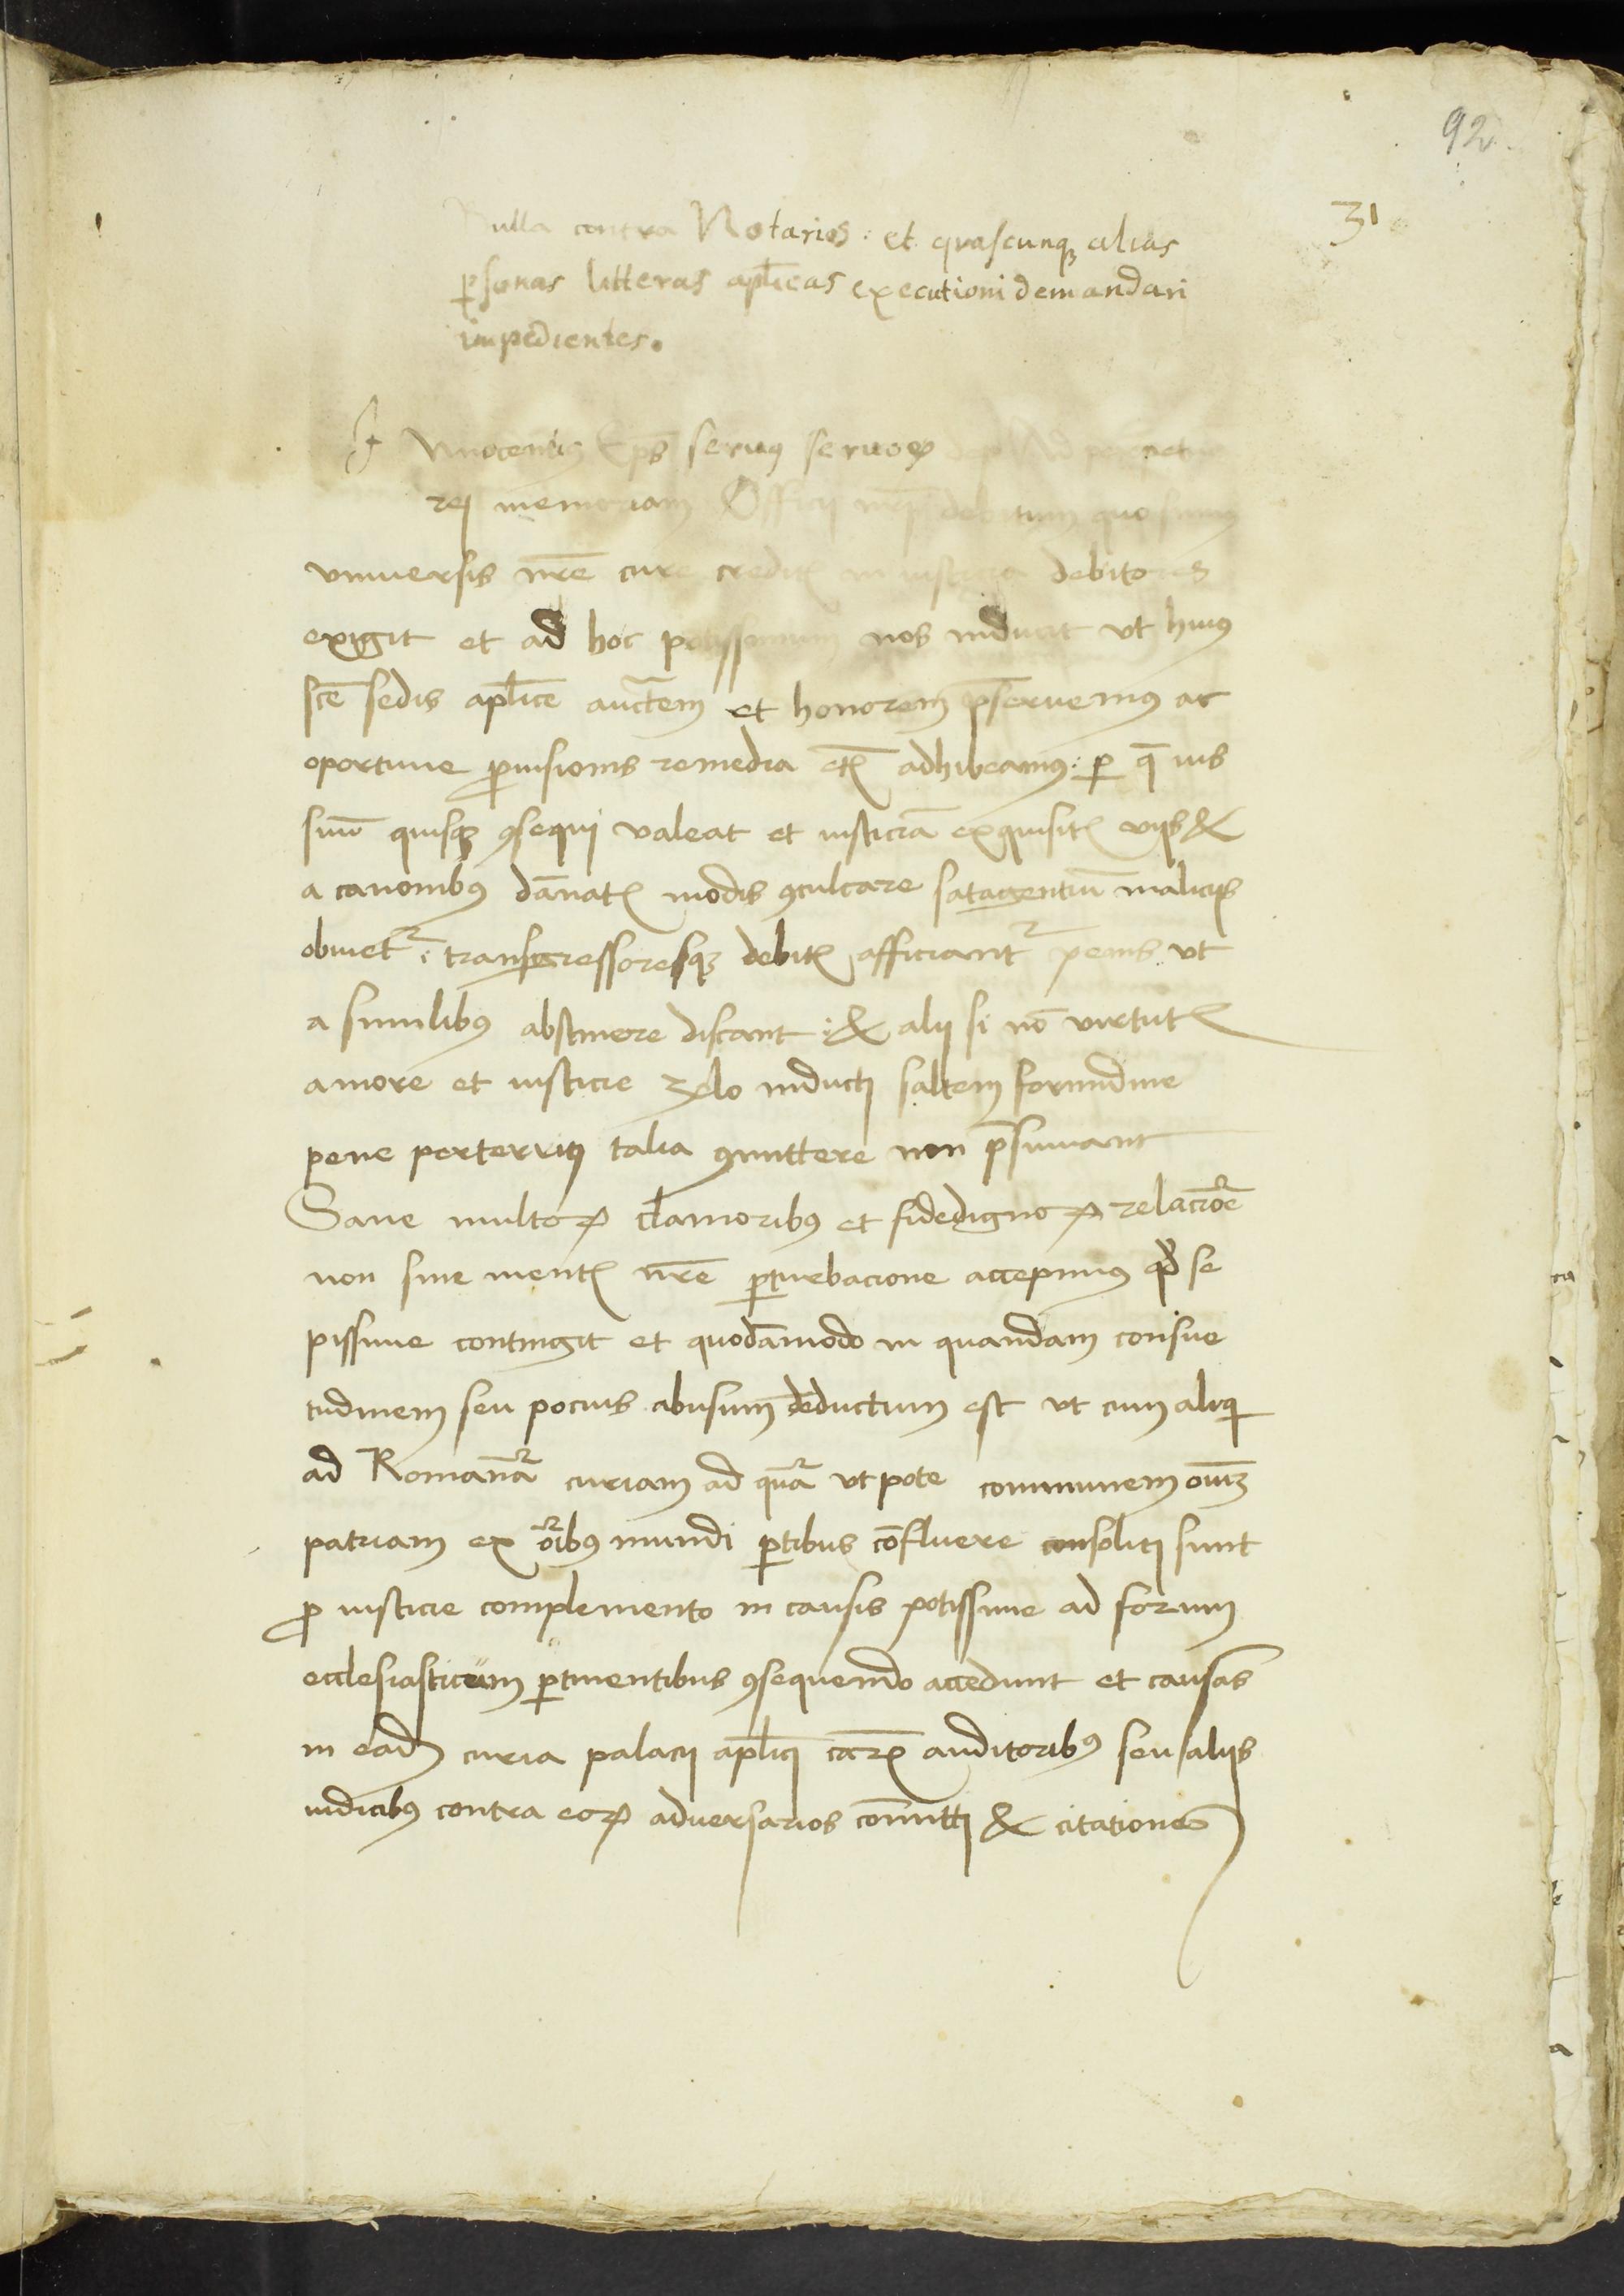 92
31
Bulla contra Notarios: et quascunqꝫ alias
ꝑsonas litteras apl̄icas executioni demandari
impedientes.
Innocentiꝰ Ep̄s seruꝰ seruoꝝ dei Ad perpetuā
rej memoriam Officij nrj̄ debitum quo sumꝰ
vniuersis nrē cure creditꝭ in iusticia debitores
exigit et ad hoc potissimum nos inducit vt huiꝰ
scē sedis apl̄ice auctēm et honorem p̄seruemꝰ ac
oportune ꝓuisionis remedia etꝭ adhibeamꝰ: ꝑ q̄ ius
suū quisqꝫ ꝯsequj valeat et iusticiā exquisitꝭ vijs &
a canonibꝰ dānatꝭ modis ꝯculcare satagentiū malicijs
obuietᷣ: transgressoresqꝫ debitꝭ afficiantᷣ penis vt
a similibꝰ abstinere discant: & alij si nō virtutꝭ
amore et iusticie zelo inductj saltem formidine
pene perterritj talia ꝯmittere non p̄sumant
Sane multoꝝ clamoribꝰ et fidedignoꝝ relacōe
non sine mentꝭ nrē ꝑturbacione accepimus qd̓ se
pissime contingit et quodāmodo in quandam consue
tudinem seu pocius abusum deductum est vt cum aliqj
ad Romanā curiam ad quā vt pote communem oniū
patriam ex oībꝰ mundi ꝑtibus cōfluere consolitj sunt
ꝓ iusticie complemento in causis potissime ad forum
ecclesiasticum ꝑtinentibus ꝯsequendo accedunt et causas
in eadꝫ curia palacij apl̄icj carꝭ auditoribꝰ seu alijs
iudicibꝰ contra eoꝝ adversarios cōmittj & citationes